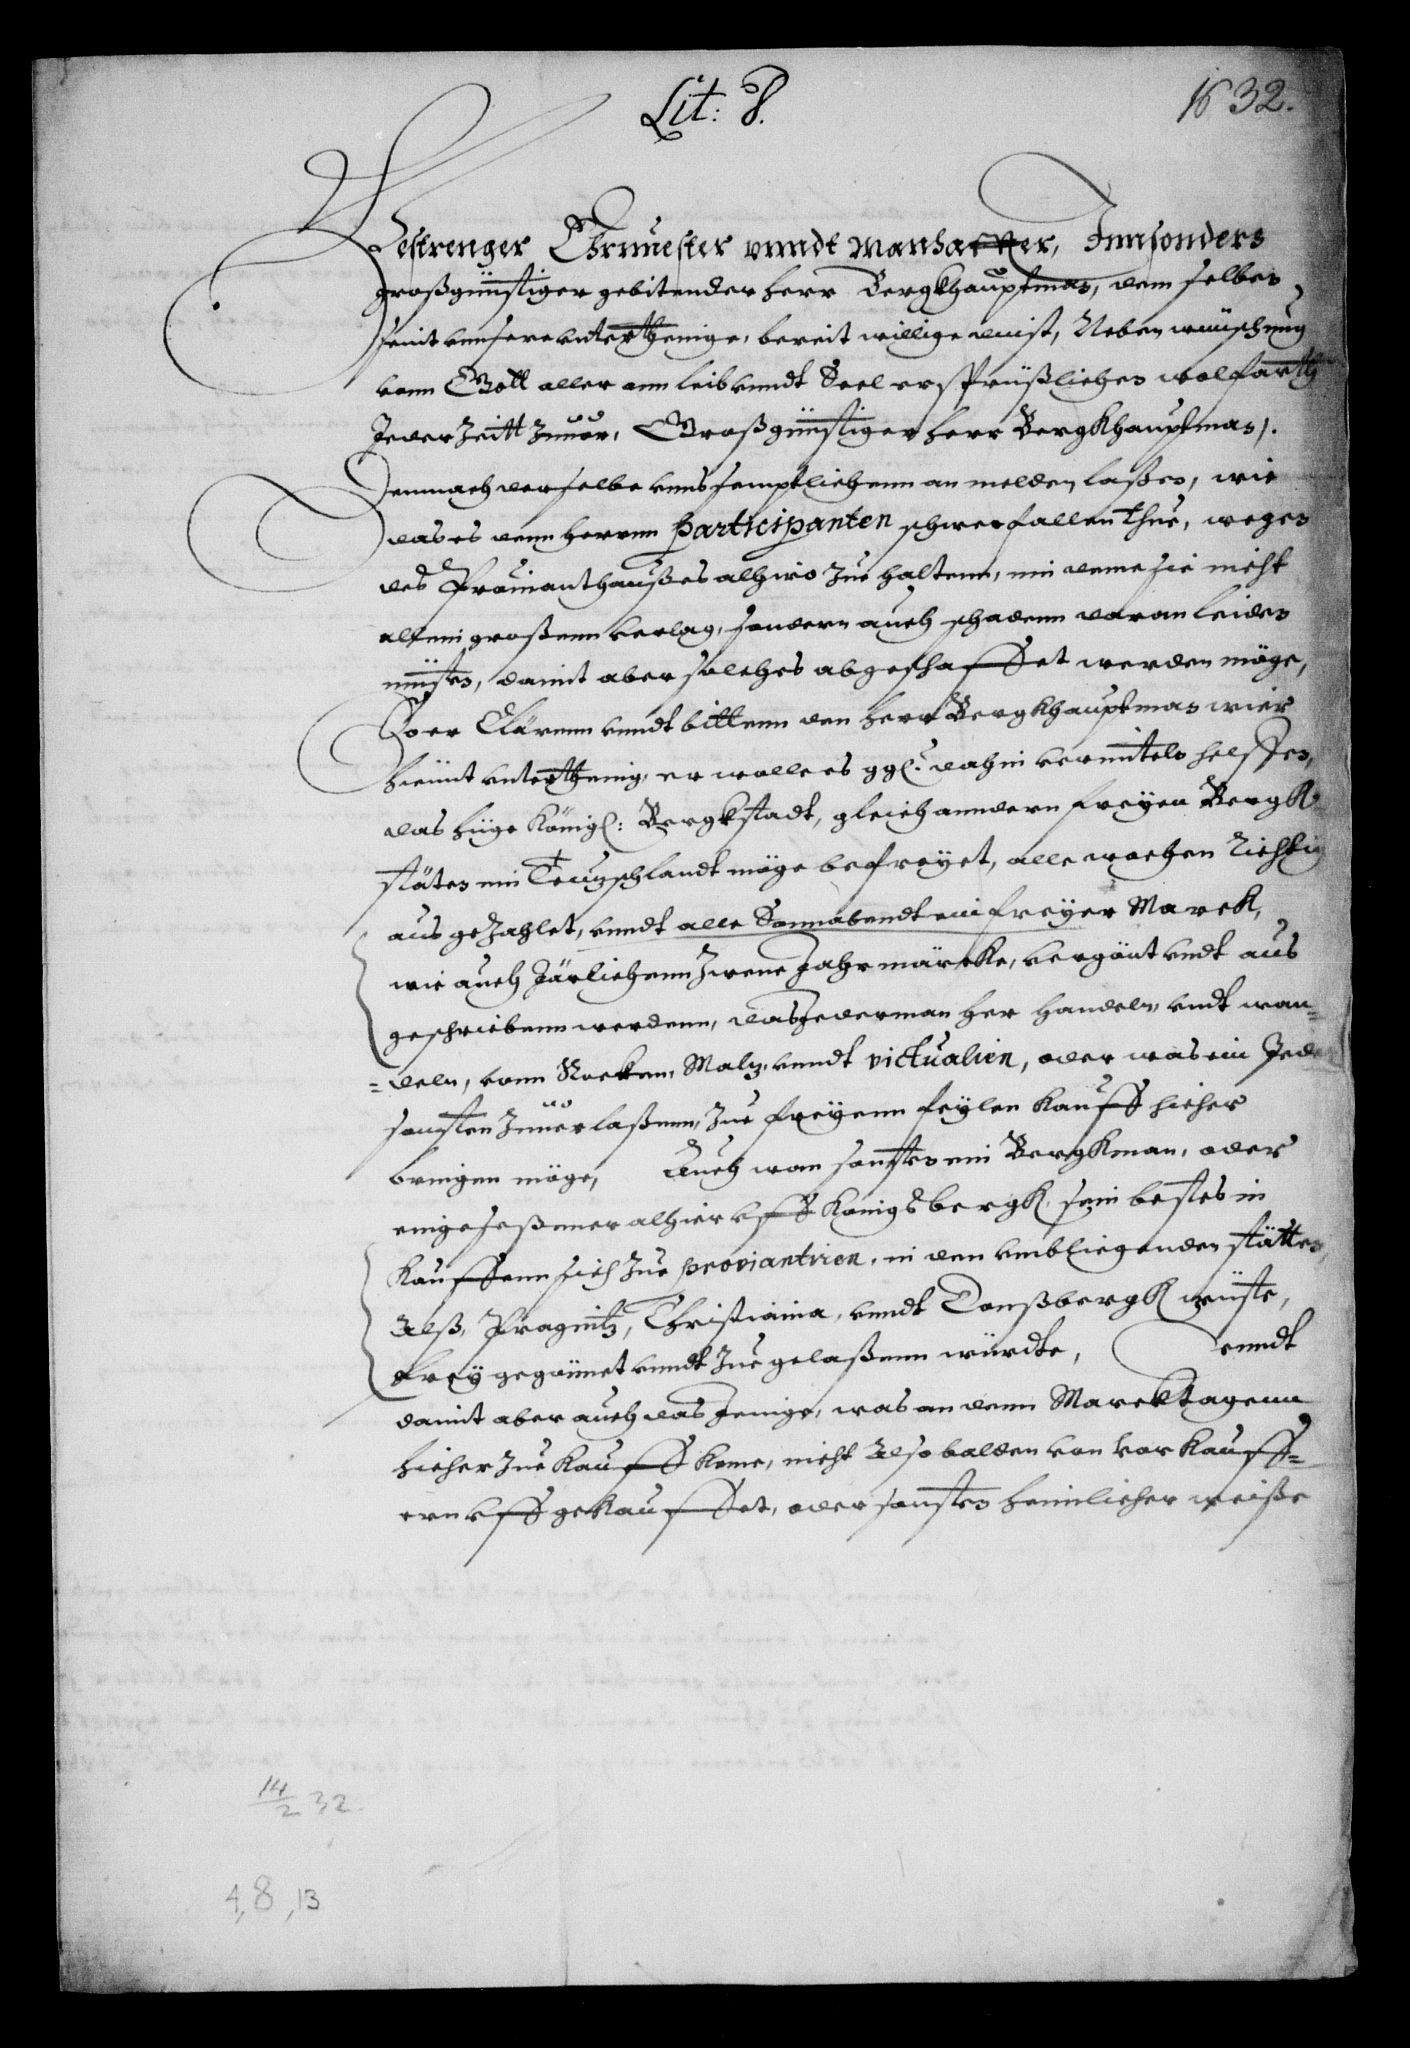 Lit: P.
1632.
Gestrenger Ehrnuester vnndt Manhaffter, Innsonders
großgünstiger gebitender herr Bergkhauptman, dem selben
seint vnnsere vnterthenige, bereit willige dinst, Neben wünschung
vonn Gott aller ann leib vnndt Seel ersprüßlichen wolfarth
Jeder Zeitt Zuuor, Großgünstiger herr Bergkhauptman.
Demnach derselbe vnns semptlichenn an melden laßen, wie
das es denn herrnn participanten schwer fallen thue, wegen
des Prouianthaußes alhiro Zue haltenn, inn deme sie nicht
allein großenn verlag, sondern auch schadenn daran leiden
müsten, damit aber solches abgeschaffet werden möge,
So er Clärenn vnndt bittenn den herr Bergkhauptman wier
hiemit vnterthenig, er wolle es ggl: dahin vermitteln helffen,
das hiige Königl: Bergkstadt, gleich anndern freyen Bergk
stäten inn Teuzschlandt möge befreyet, alle wochen Richtig
aus geZahlet, vnndt alle Sonnabendt ein freyer Marck,
wie auch Järlichenn Zwene Jahrmärcke, vergönt vndt aus
geschriebenn werdenn, das Jederman her handeln vndt wan=
=deln, vonn Rocken, Maltz, vnndt victualien, oder was ein Jeder
sonsten Zuuerlaßenn, Zue freyenn feylen Kauff hieher
bringen möge, Auch wan sonsten ein Bergkman, oder
eingeseßener alhier vff Königsbergk, sein bestes in
Kauffenn sich Zue proviantiren, in den vmbliegenden stätten,
Alß, Pragnitz, Christiania, vnndt Tonßbergk wüste,
frey gegönnet vnndt Zue gelaßenn würdte, vnndt
damit aber auch das Jenige, was an denn Marcktagenn
hieher Zue Kauff Kome, nicht Also balden von vor Kauff=
ern vff gekauffet, oder sonsten heimlicher weiße
14/2 32.
4, 8, 13